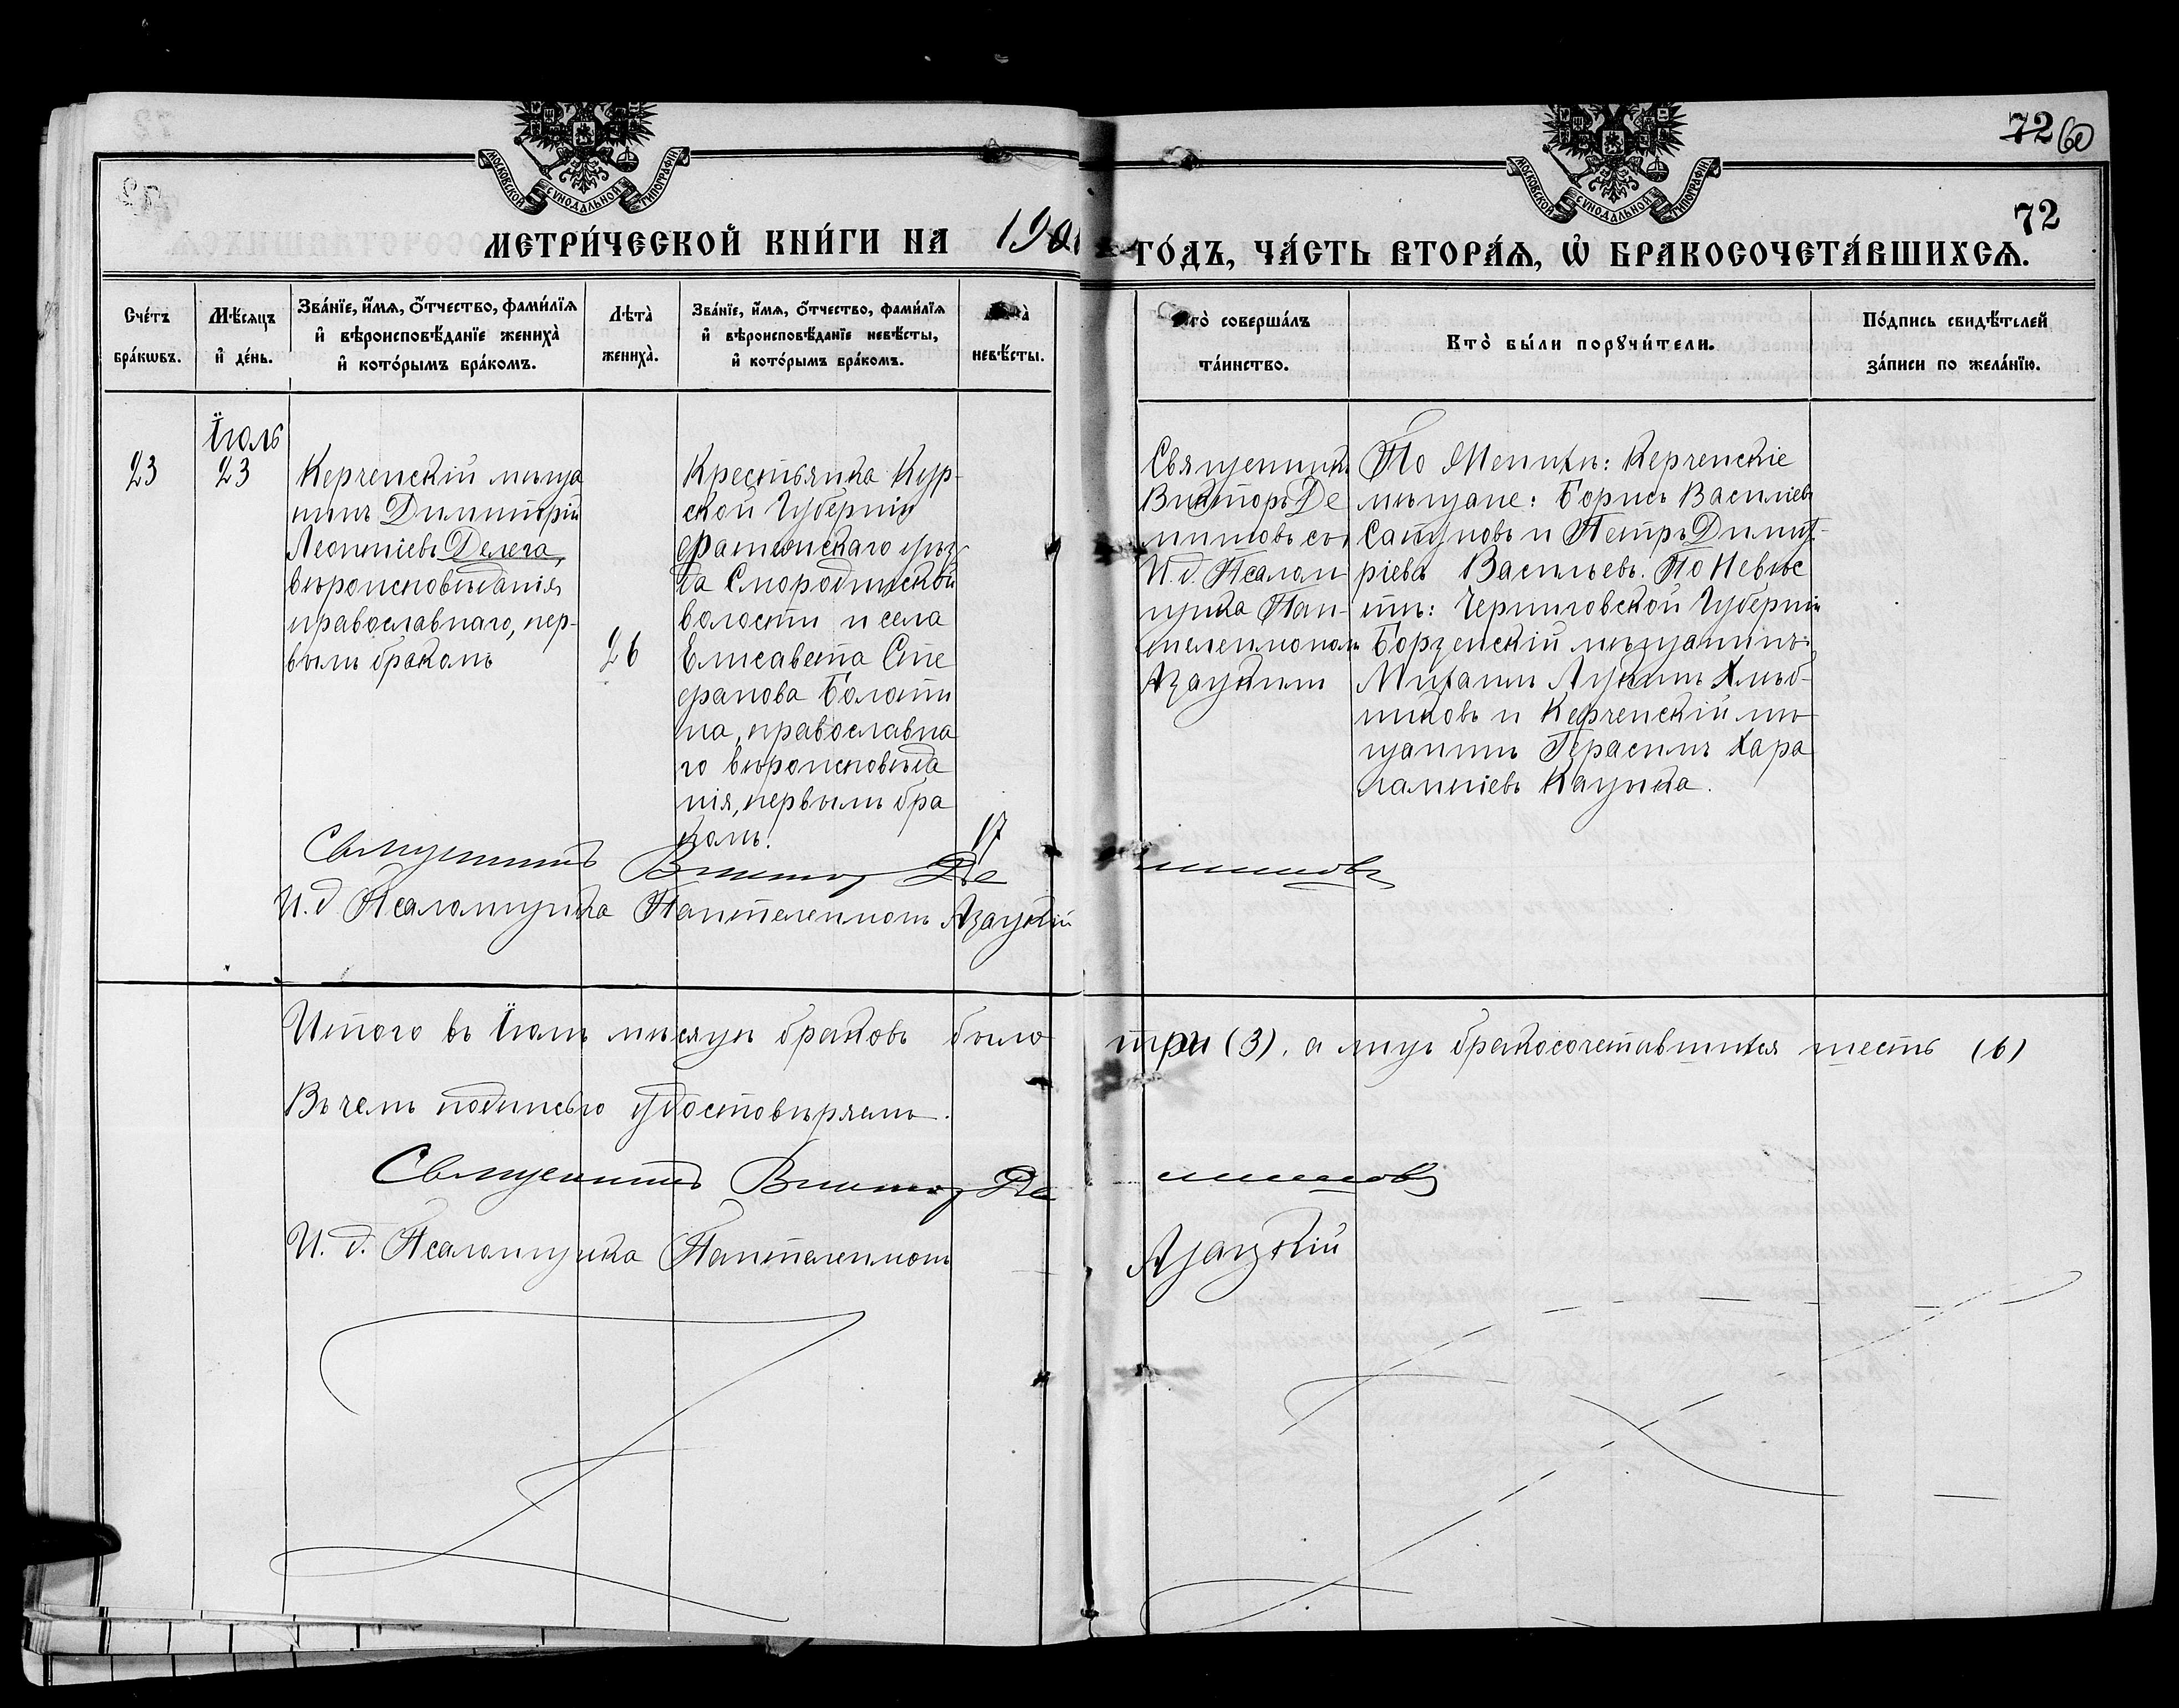 72 60
72
МОСКОВСКОЙ СУНОДАЛЬНОЙ ТИПОГРАФІИ
МОСКОВСКОЙ СУНОДАЛЬНОЙ ТИПОГРАФІИ
МЕТРИ́ЧЕСКОЙ КНИ́ГИ НА 190 ГО́ДЪ, ЧА́СТЬ ВТОРА́Я, Ѽ БРАКОСОЧЕТА́ВШИХСЯ.
Сче́тъ
бра́кѡвъ.
Мѣ́сяцъ
и҆ де́нь.
Зва́нїе, и҆́мя, ѻ҆́тчество, фами́лїя
и҆ вѣроисповѣ́данїе жениха̀
и҆ кото́рымъ бра́комъ.
Лѣта̀
жениха̀.
Зва́нїе, и҆́мя, ѻ҆́тчество, фами́лїя
и҆ вѣроисповѣ́данїе невѣ́сты,
и҆ кото́рымъ бра́комъ.
невѣ́сты.
Кто̀ соверша́лъ
та́инство.
Кто̀ бы́ли порꙋчи́тели.
По́дпись свидѣ́телей
за́писи по жела́нїю.
23
Іюль
23
Керченскій мѣща
нинъ Димитрій
Леонтіевъ Делега,
вѣроисповѣданія
православнаго, пер-
вымъ бракомъ
26
Крестьянка Кур-
ской Губерніи
уѣз
да Смородинской
волости и села
Елисавета Сте
фанова Болоти
на, православна
го вѣроисповѣда
нія, первымъ бра
комъ.
17
Священникъ
Викторъ Де
съ
И. д. Псалом
щика Пан-
телеимономъ
Азацкимъ
По Женихѣ: Керченскіе
мѣщане: Борисъ Василіевъ
Сапуновъ и Петръ Димит-
ріевъ Васильевъ. По Невѣс
тѣ: Черниговской Губерніи
Борзенскій мѣщанинъ
Михаилъ Лукинъ Хлѣб-
никовъ и Керченскій мѣ
щанинъ Герасимъ Хара
лампіевъ Кацика.
Священникъ Викторъ Де
И. д. Псаломщика Пантелеимонъ Азацкій
Итого въ Іюлѣ мѣсяцѣ браковъ было три (3), а лицъ бракосочетавшихся шесть (6)
Въ чемъ подписью удостовѣряемъ.
Священникъ Викторъ Де
И. д. Псаломщика Пантелеимонъ Азацкій